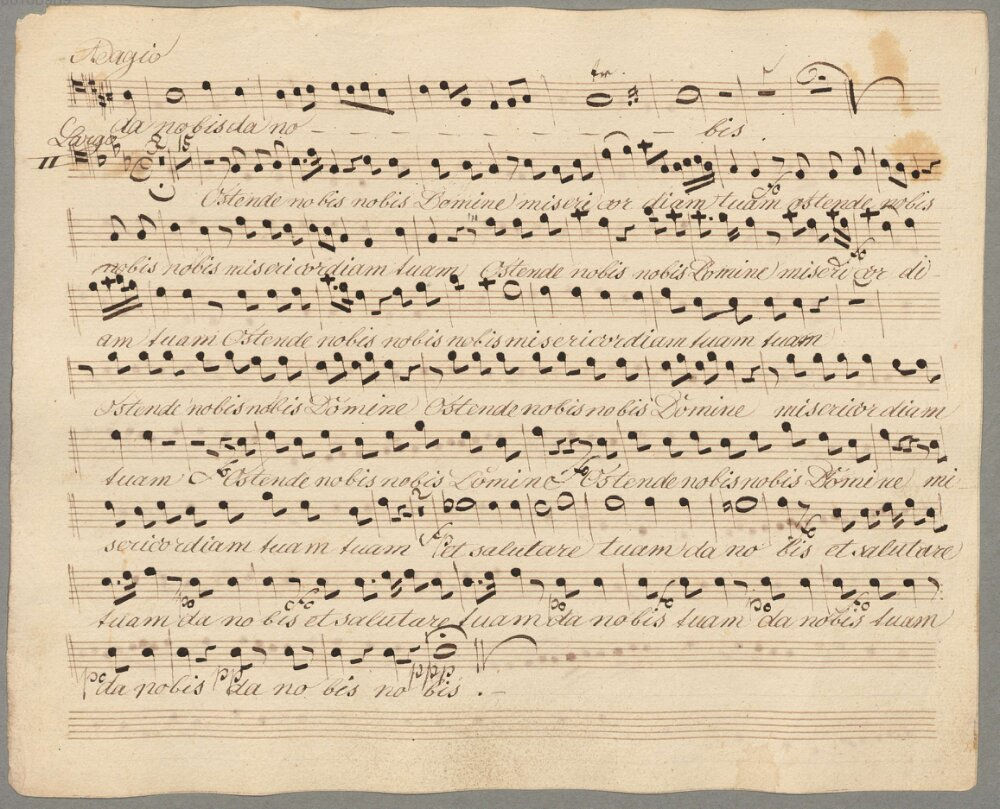 Adagio
da nobis da no - - - - - - - - - bis
Largo 15
Ostende nobis nobis Domine misericordiam tuam ostende nobis fo
nobis nobis misericordiam tuam Ostende nobis nobis Domine misericor di- fo
am tuam Ostende nobis nobis nobis misericordiam tuam tuam
Ostende nobis nobis Domine Ostende nobis nobis Domine misericordiam
tuam fo Ostende nobis nobis Domine fo Ostende nobis nobis Domine mi
sericordiam tuam tuam fo et salutare tuam da no bis fo et salutare
tuam po da no bis fo et salutare tuam po da nobis fo tuam po da nobis fo tuam
po da nobis pp da no bis no ppp bis . -